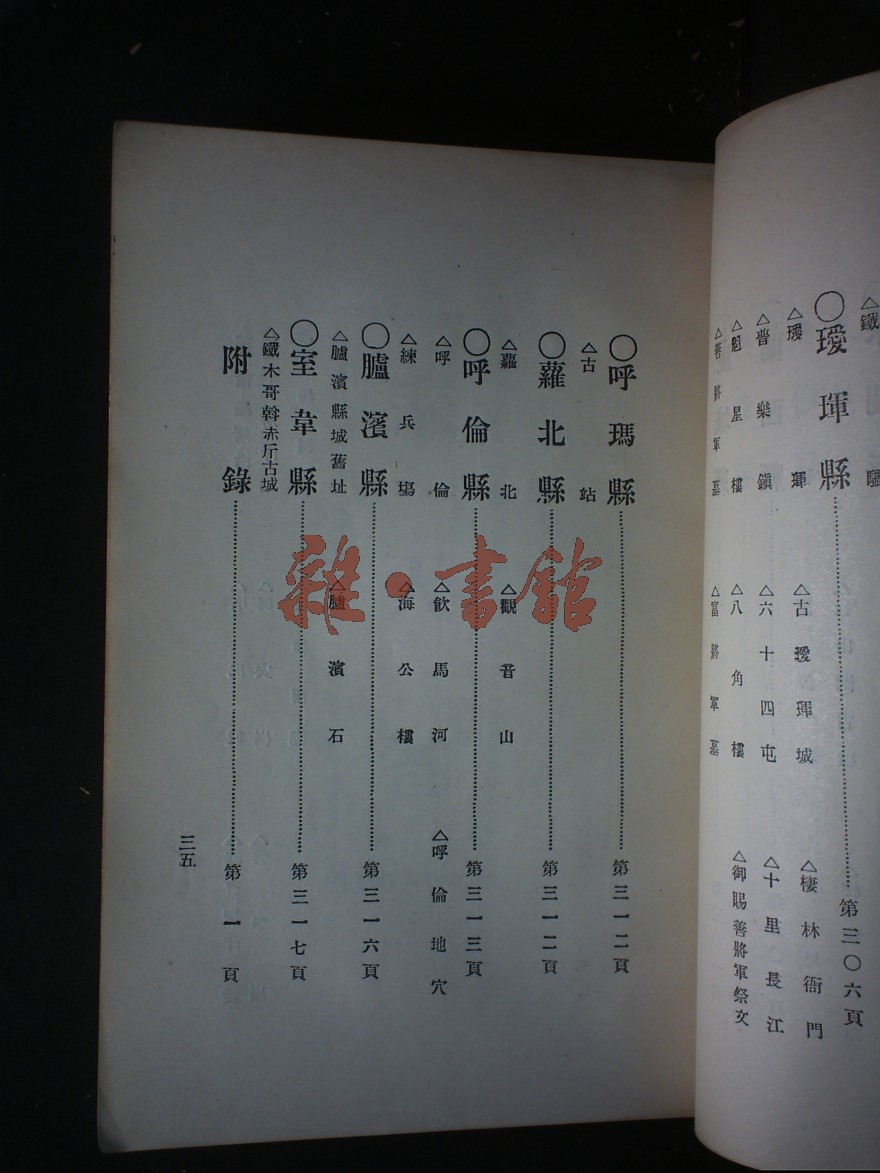 △鐵　驪
○璦琿縣……第三〇六頁
△璦琿　△古璦琿城　△棲林衙門
△普樂鎮　△六十四屯　△十里長江
△魁星樓　△八角樓　△御賜善將軍祭文
△善將軍墓　△富將軍墓
○呼瑪縣……第三一二頁
△古站
○蘿北縣……第三一二頁
△蘿北　△觀音山
○呼倫縣……第三一三頁
△呼倫　△飲馬河　△呼倫地穴
△練兵場　△海公樓
○臚濱縣……第三一六頁
△臚濱縣城舊址　△臚濱石
○室韋縣……第三一七頁
△鐵木哥斡赤斤古城
附錄……第一頁
三五
雜·書館